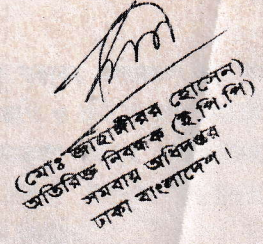 (মোঃ জাহাঙ্গীরর হোসেন)
অতিরিক্ত নিবন্ধক (ই.পি.পি)
সমবায় অধিদপ্তর
ঢাকা বাংলাদেশ।